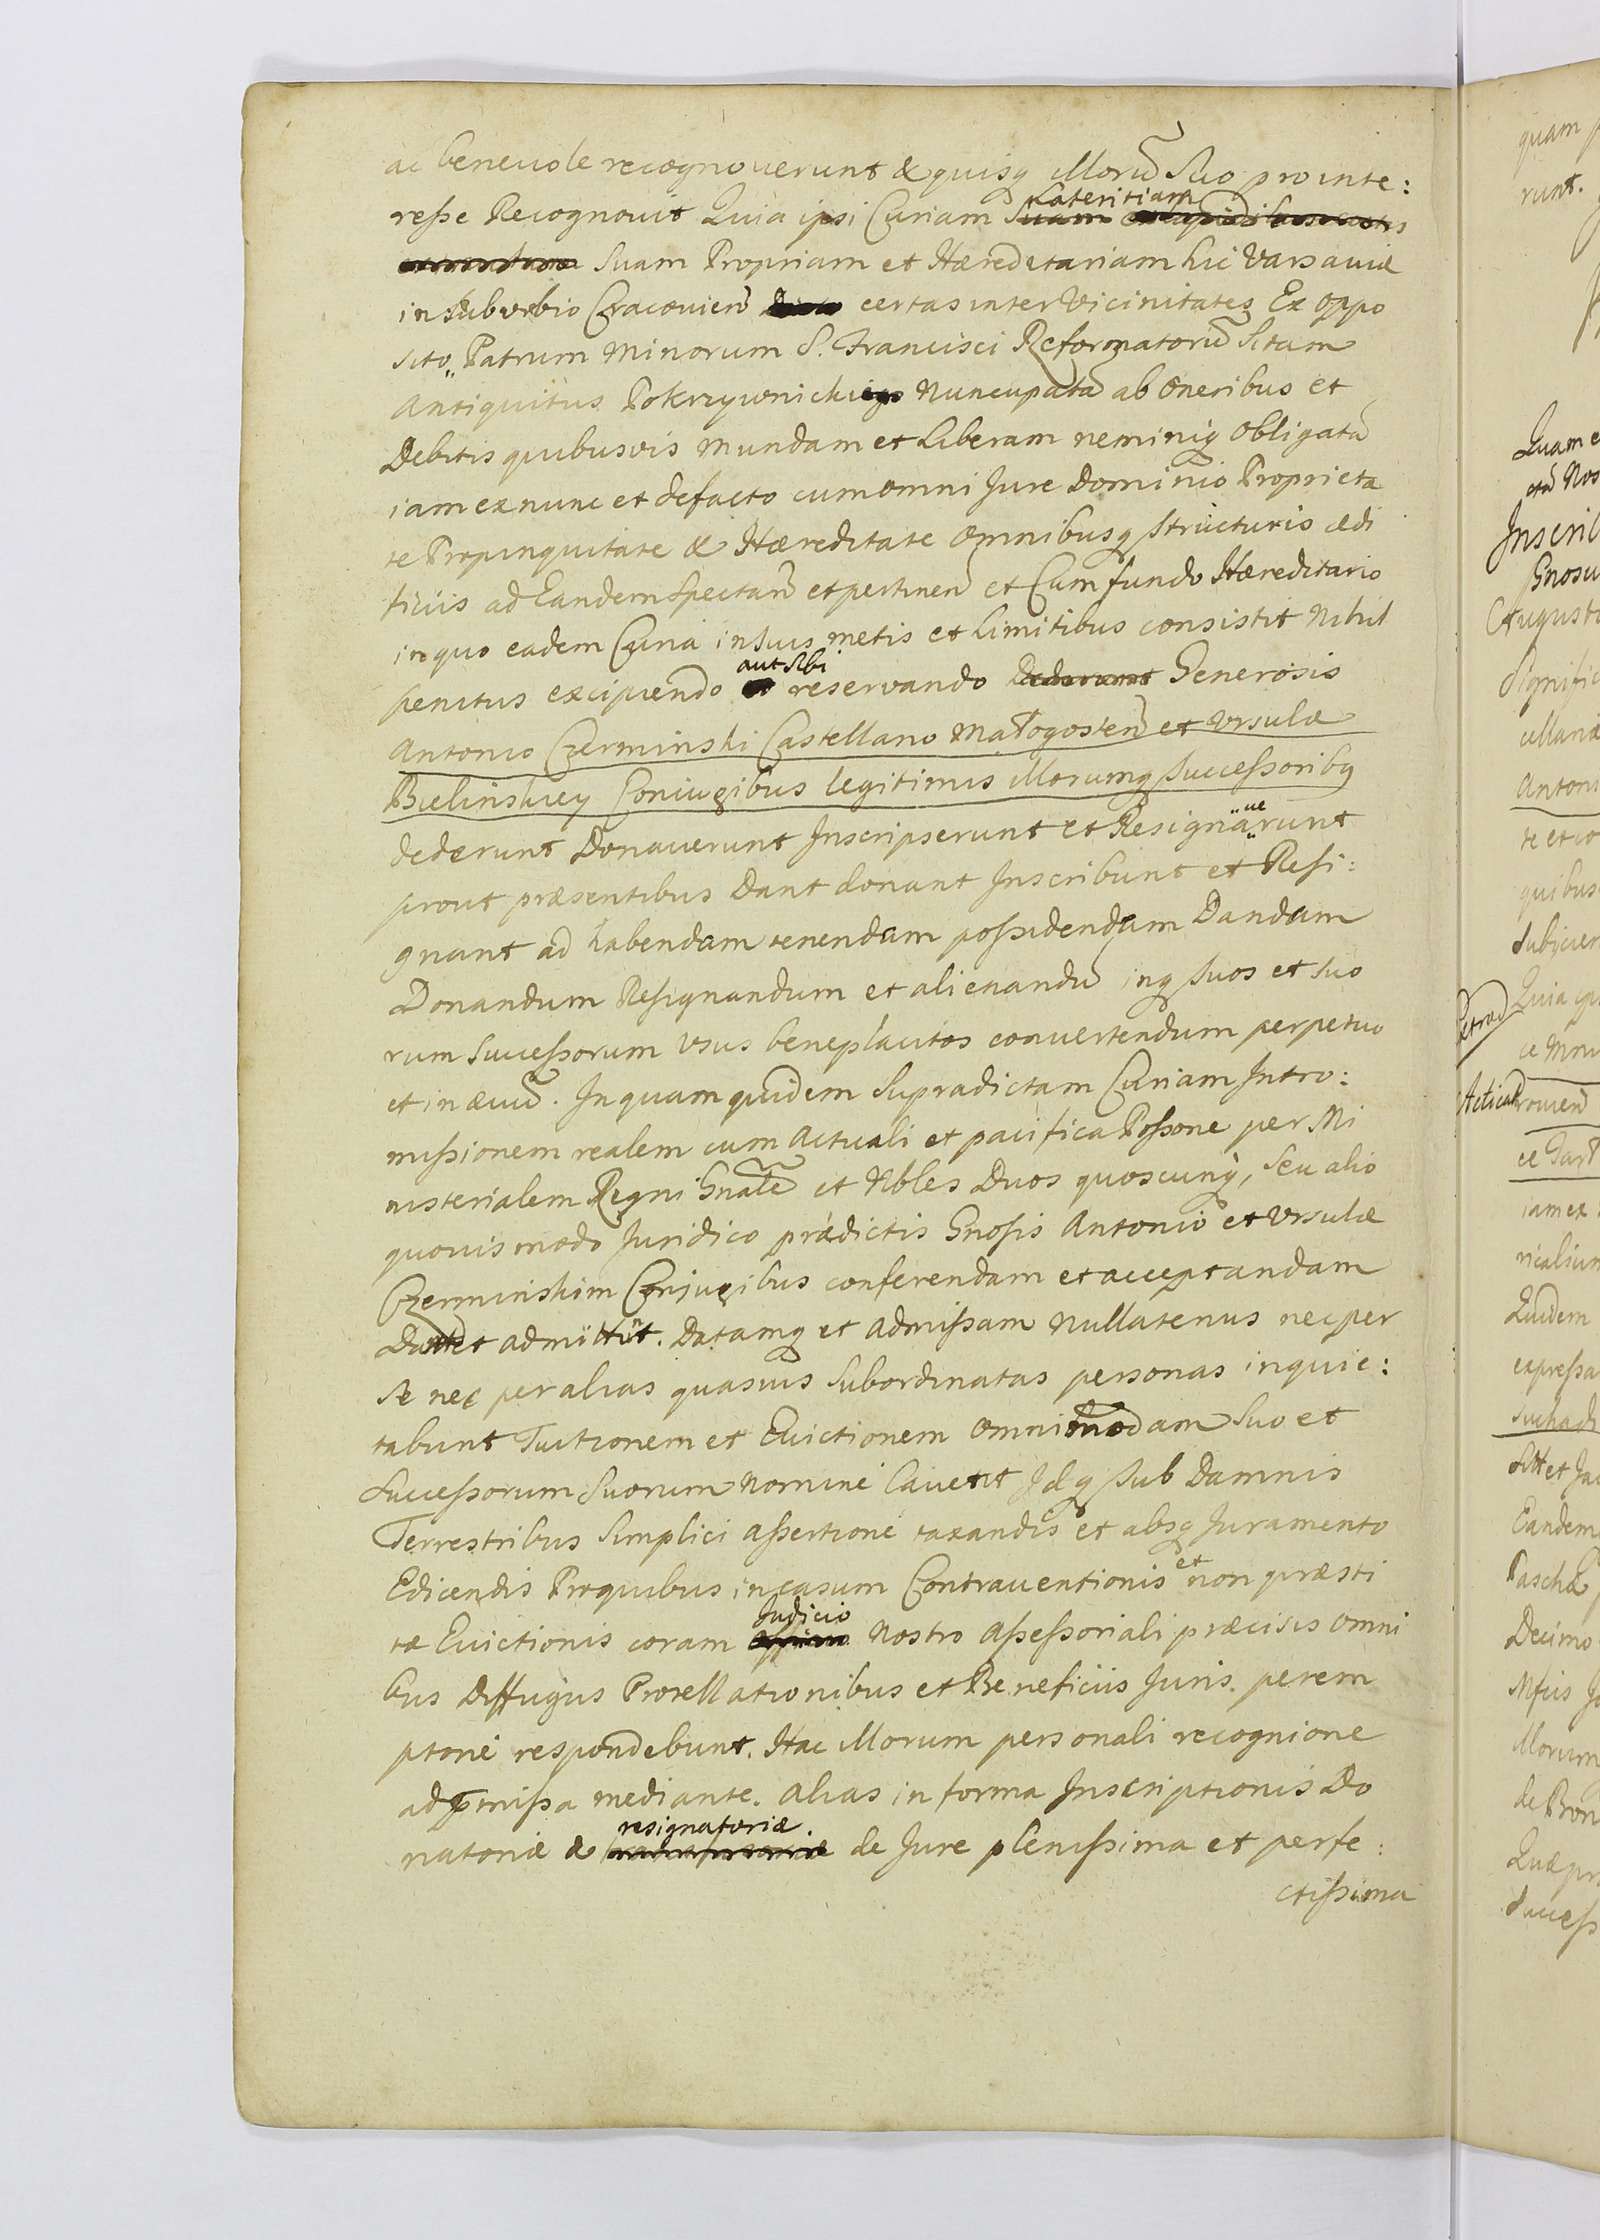 ac beneuole recognouerunt & quisq̨ illorū Suo pro inte:
reſse Recognouit Quia ipsi Curiam Suam Lateritiam
Suam Propriam et Hæreditariam hic Varsauiæ
in Suburbio Cracouien̄ certas inter Vicinitates Ex oppo
sito Patrum Minorum S. Francisci Reformatorū Sitam
Antiquitus Pokrzywnickiego Nuncupatā ab Oneribus et
Debitis quibusvis Mundam et Liberam neminiq̨ Obligatā
iam ex nunc et de facto cum omni Jure Dominio Proprieta
te Propinquitate & Hæreditate Omnibusq̨ Structuris ædi
ficiis ad Eandem Spectan̄ et pertinen̄ et Cum fundo Hæreditario
in quo eadem Curia in suis metis et Limitibus consistit Nihil
penitus excipiendo aut Sibi reservando Dederunt Generosis
Antonio Czerminski Castellano Małogosten̄ et Ursulæ
Bielinskiey Coniugibus legitimis illorumq̨ Succeſsoribq̨
dederunt Donauerunt Inscripserunt et Resignaüerunt
prout præsentibus Dant donant Inscribunt et Resi:
gnant ad habendam tenendam poſsidendam Dandam
Donandum Resignandum et alienandū inq̨ Suos et Suo
rum Succeſsorum Usus beneplacitos convertendum perpetuo
et in æuū. In quam quidem Supradictam Curiam Intro:
miſsionem realem cum Actuali et pacifica Poſsone per Mi
nisterialem Regni Gnałe et Nbles Duos quoscunq̨, Seu alio
quouis modo Juridico prædictis Gnosis Antonio et Ursulæ
Czerminskim Conjugibus conferendam et acceptandam
Dant et admittūt. Datamq̨ et Admiſsam Nullatenus nec per
Se nec per alias quasuis Subordinatas personas inquie:
tabunt Tuitionem et Euictionem Omnimodam Suo et
Succeſsorum Suorum Nomine Cauent Idq̨ Sub Damnis
Terrestribus Simplici aſsertione taxandis et absq̨ Juramento
Edicendis Pro quibus in casum Contrauentionis et non præsti
tæ Euictionis coram Judicio Nostro Aſseſsoriali præcisis Omni
bus Diffugiis Prorellationibus et Beneficiis Juris perem
ptorie respondebunt. Hac illorum personali recognione
ad p̄miſsa mediante. Alias in forma Inscriptionis Do
natoriæ & resignatoriæ de Jure pleniſsima et perfe:
ctiſsima
quam
runt.
Quam e
Nos
Inscrib
Gnosu
Augusti
Signific
Antoni
te et co
quibus
Subjicien
Quia ips
iam ex
Quidem
expreſsa
Suchads
Eandem
Pascha
Decimo
illorum
de Pron
Quæ pr
Succeſs